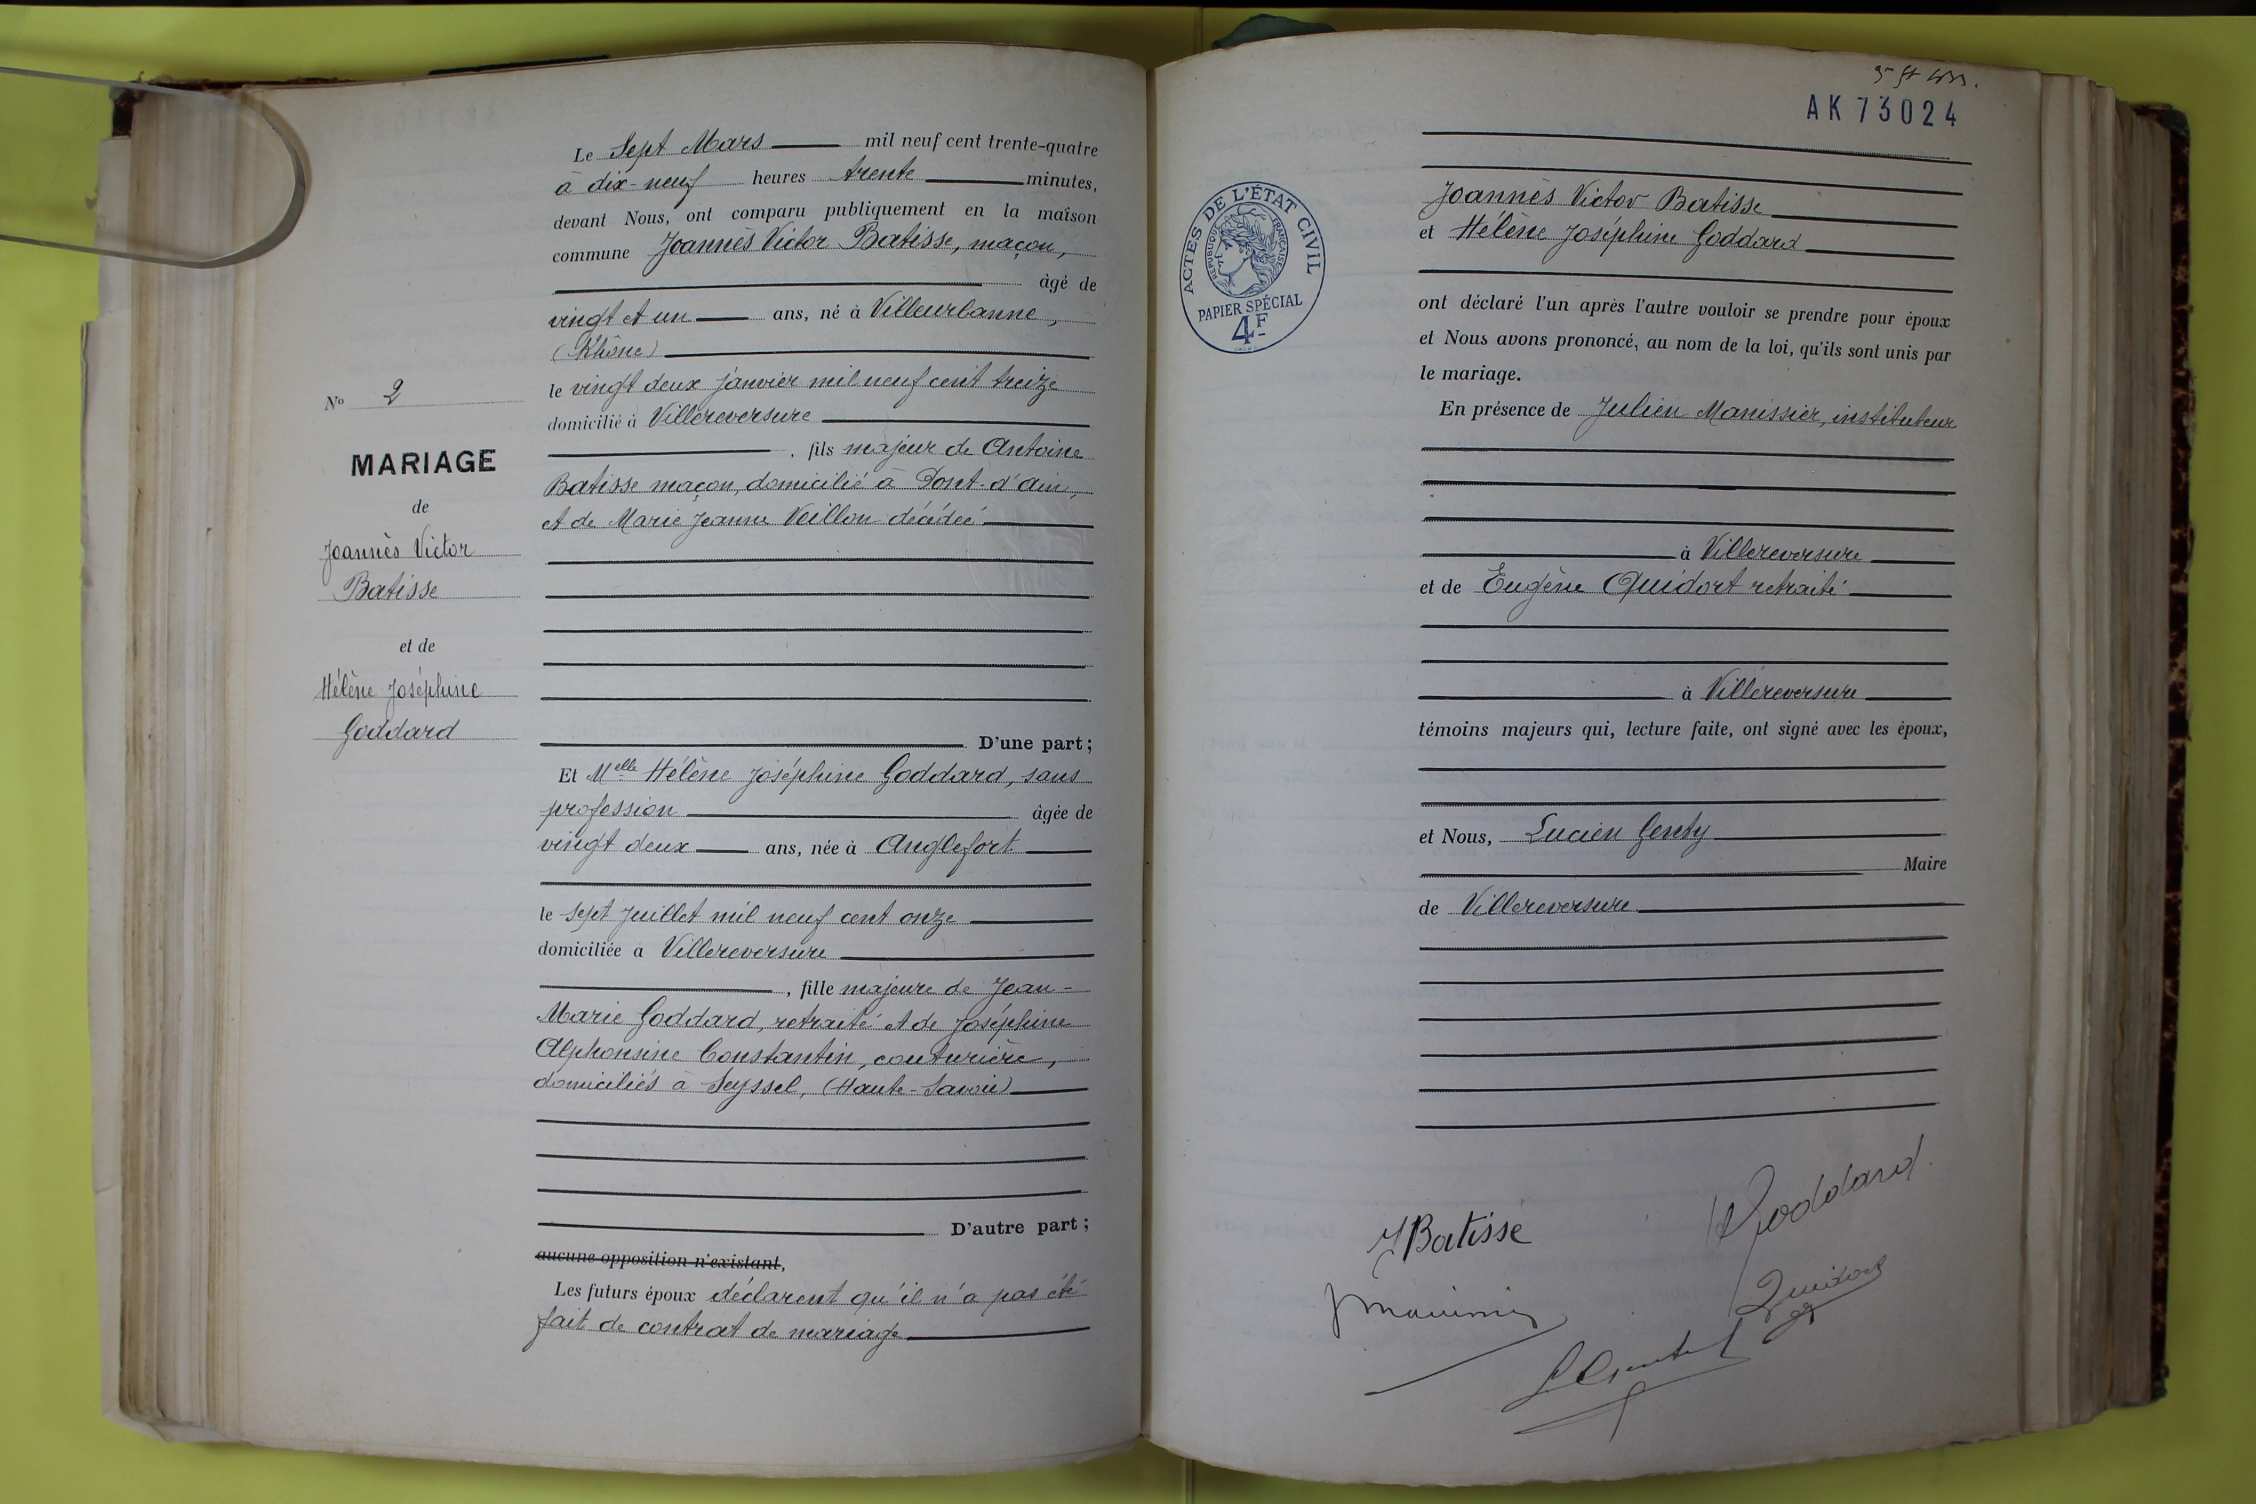 Le Sept Mars mil neuf cent trente-quatre
à dix-neuf heures trente minutes,
devant Nous, ont comparu publiquement en la maison
commune Joannès Victor Batisse, maçon,
âgé de
vingt et un ans, né à Villeurbanne,
(Rhône)
le vingt deux janvier mil neuf cent treize
domicilié à Villereversure
, fils majeur de Antoine
Batisse maçon, domicilié à Pont-d'ain,
et de Marie Jeanne Veillon décédée
D'une part ;
Et Melle Hélène Joséphine Goddard, sans
profession âgée de
vingt deux ans, née à Anglefort
le sept Juillet mil neuf cent onze
domiciliée à Villereversure
, fille majeure de Jean-
Marie Goddard, retraité et de Joséphine
Alphonsine Constantin, couturière,
domiciliés à Seyssel, (Haute-Savoie)
D'autre part ;
aucune opposition n'existant,
Les futurs époux déclarent qu'il n'a pas été
fait de contrat de mariage
No 2
MARIAGE
de
Joannès Victor
Batisse
et de
Hélène Joséphine
Goddard
AK 73024
ACTES DE L'ÉTAT CIVIL
RÉPUBLIQUE FRANÇAISE
PAPIER SPÉCIAL
4F
Joannès Victor Batisse
et Hélène Joséphine Goddard
ont déclaré l'un après l'autre vouloir se prendre pour époux
et Nous avons prononcé, au nom de la loi, qu'ils sont unis par
le mariage.
En présence de Julien Manissier, instituteur
à Villereversure
et de Eugène Quidort retraité
à Villereversure
témoins majeurs qui, lecture faite, ont signé avec les époux,
et Nous, Lucien Genty
Maire
de Villereversure
H Goddard
J Batisse
Quidort
J Manissier
L Genty